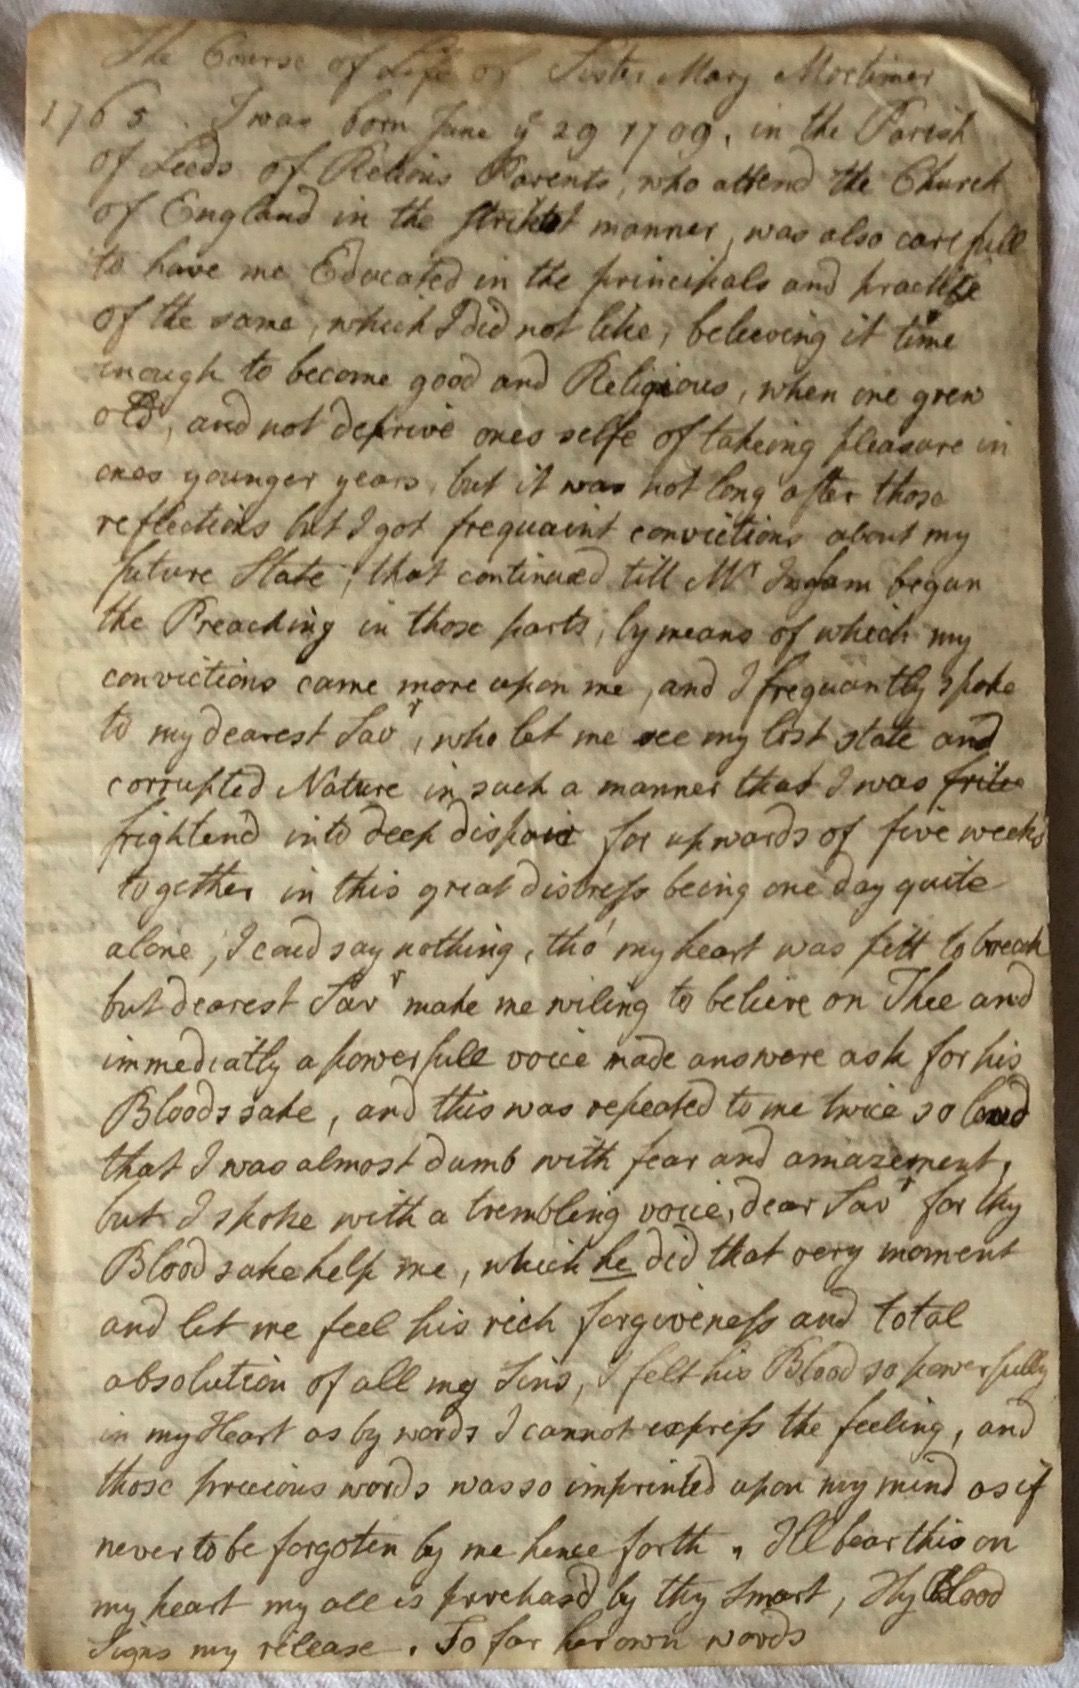 The Course of Life of Sister Mary Mortimer
1765. I was born June ye 29 1709, in the Parish
of Leeds of Relious Parents, who attend the Church
of England in the striktest manner, was also carefull
to have me Educated in the principals and practise
of the same, which I did not like, beleeving it time
enough to become good and Religious, when one grew
old, and not deprive ones selfe of takeing pleasure in
ones younger years, but it was not long after those
reflections but I got frequaint convictions about my
future State, that continued till Mr Ingham began
the Preaching in those parts, by means of which my
convictions came more upon me, and I frequantly spoke
to my dearest Savr, who let me see my lost state and
corrupted Nature in such a manner that I was
frightend into deep dispair for upwards of five weeks
together in this great distress being one day quite
alone, I coud say nothing, tho' my heart was fitt to break
but dearest Savr make me wiling to believe on Thee and
immediatly a powerfull voice made answere ask for his
Bloods sake, and this was repeated to me twice so loud
that I was almost dumb with fear and amazement,
but I spoke with a trembling voice, dear Savr for thy
Blood sake help me, which he did that very moment
and let me feel his rich forgiveness and total
absolution of all my Sins, I felt his Blood so powerfully
in my Heart as by words I cannot express the feeling, and
those precious words was so imprinted upon my mind as if
never to be forgoten by me hence forth „ Ill bear this on
my heart my all is purchas'd by thy Smart, Thy Blood
Signs my release. So far her own words